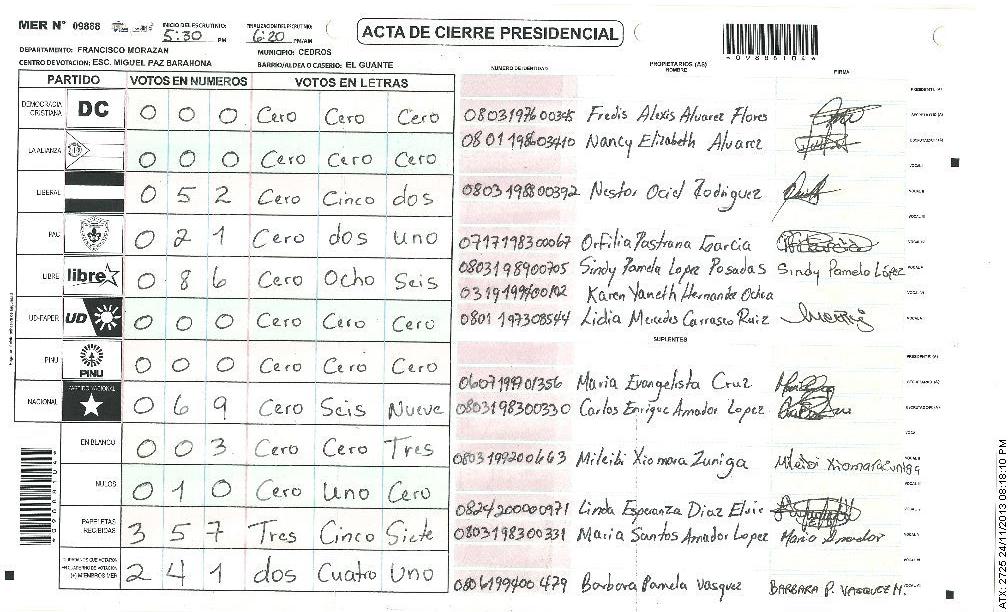 MER N° 09888 INICIO DEL ESCRUTINIO: 5:30 PM FINALIZACION DEL ESCRUTINIO: 6:20 PM/AM
ACTA DE CIERRE PRESIDENCIAL
DEPARTAMENTO: FRANCISCO MORAZAN MUNICIPIO: CEDROS
CENTRO DE VOTACION: ESC. MIGUEL PAZ BARAHONA BARRIO/ALDEA O CASERIO: EL GUANTE
PARTIDO VOTOS EN NUMEROS VOTOS EN LETRAS
DEMOCRACIA CRISTIANA DC 0 0 0 Cero Cero Cero
LA ALIANZA 0 0 0 Cero Cero Cero
LIBERAL 0 5 2 Cero Cinco dos
PAC 0 2 1 Cero dos uno
LIBRE libre 0 8 6 Cero Ocho Seis
UD-FAPER UD 0 0 0 Cero Cero Cero
PINU PINU 0 0 0 Cero Cero Cero
NACIONAL PARTIDO NACIONAL 0 6 9 Cero Seis Nueve
EN BLANCO 0 0 3 Cero Cero Tres
NULOS 0 1 0 Cero Uno Cero
PAPELETAS RECIBIDAS 3 5 7 Tres Cinco Siete
2 4 1 dos Cuatro Uno
NUMERO DE IDENTIDAD PROPIETARIOS (AS) NOMBRE FIRMA
PRESIDENTE (A)
0803197600345 Fredis Alexis Alvarez Flores
SECRETARIO (A)
0801198603410 Nancy Elizabeth Alvarez
ESCRUTADOR (A)
VOCAL I
0803198800392 Nestor Ociel Rodriguez
VOCAL II
VOCAL III
0717198300067 Orfilia Pastrana Garcia
VOCAL IV
0803198900705 Sindy Pamela Lopez Posadas Sindy Pamela López
VOCAL V
Karen Yaneth Hernande Ochoa
0801197308544 Lidia Mercedes Carrasco Ruiz
SUPLENTES
PRESIDENTE (A)
0607199701356 Maria Evangelista Cruz
SECRETARIO (A)
0803198300330 Carlos Enrique Amador Lopez
ESCRUTADOR (A)
0803199200663 Mileibi Xiomara Zuniga
0824200000971 Linda Esperanza Diaz Elvir
0803198300331 Maria Santos Amador Lopez Maria Amador
0806199400479 Barbara Pamela Vasquez BARBARA P. VASQUEZ M.
ATX: 2725 24/11/2013 08:18:10 PM